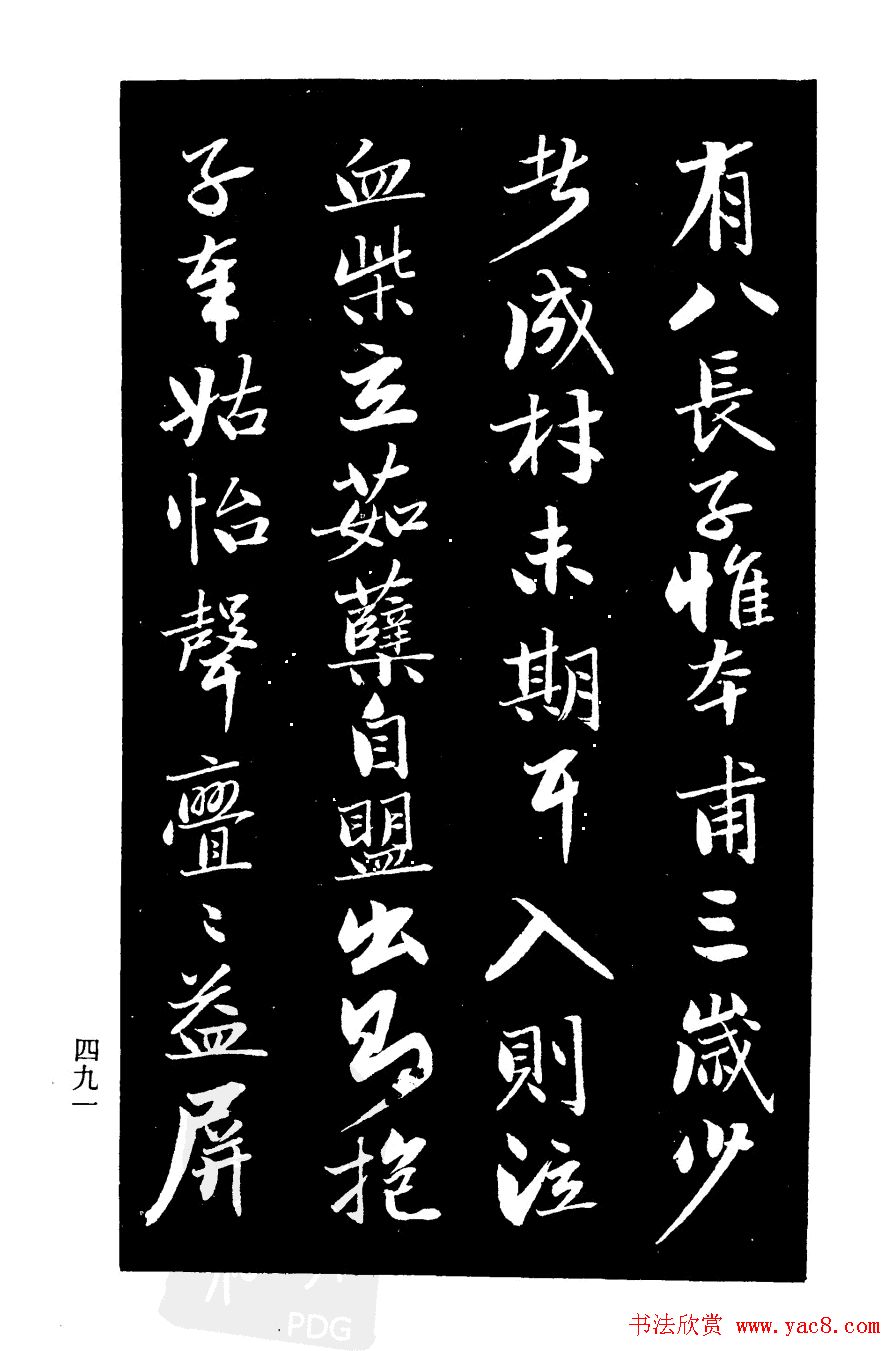 有八長子惟本甫三歲少
者成材未期耳入則泣
血柴立茹蘗自盟出則抱
子奉姑怡聲亹〻益屏
四九一
PDG
书法欣赏 www.yac8.com